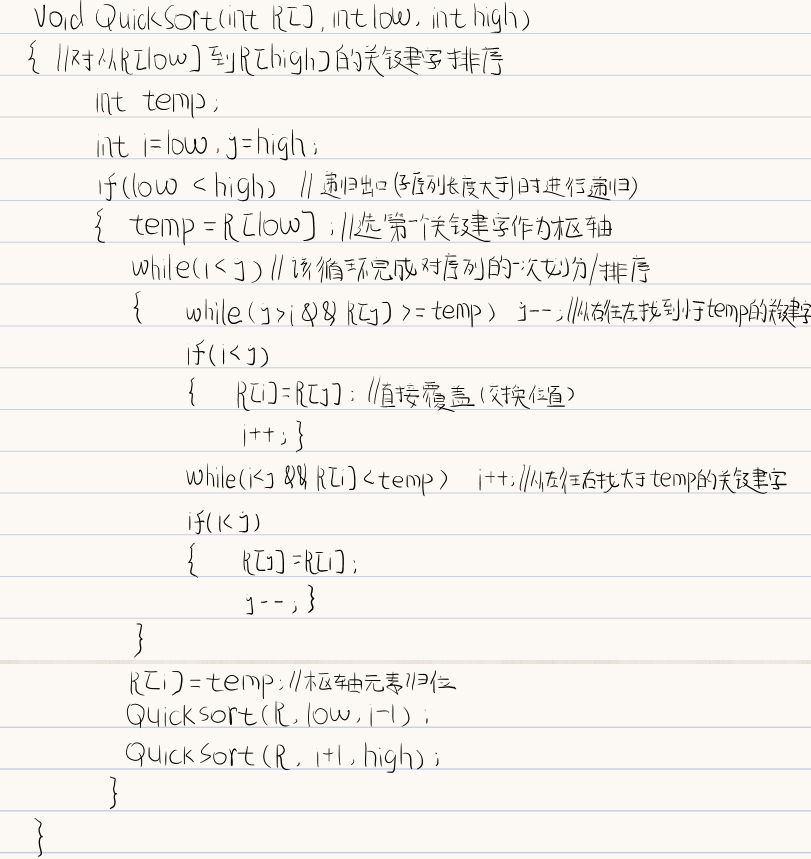 Void QuickSort(int R[], int low, int high)
{ //对从R[low]到R[high]的关键字排序
int temp;
int i=low, j=high;
if(low < high) //递归出口(子序列长度大于1时进行递归)
{ temp = R[low]; //选第一个关键字作为枢轴
while(i<j) //该循环完成对序列的一次划分/排序
{ while(j>i && R[j] >= temp) j--; //从右往左找到小于temp的关键字
if(i<j)
{ R[i]=R[j]; //直接覆盖(交换位置)
i++; }
while(i<j && R[i]<temp) i++; //从左往右找大于temp的关键字
if(i<j)
{ R[j]=R[i];
j--; }
}
R[i]=temp; //枢轴元素归位
Quicksort(R, low, i-1);
QuickSort(R, i+1, high);
}
}